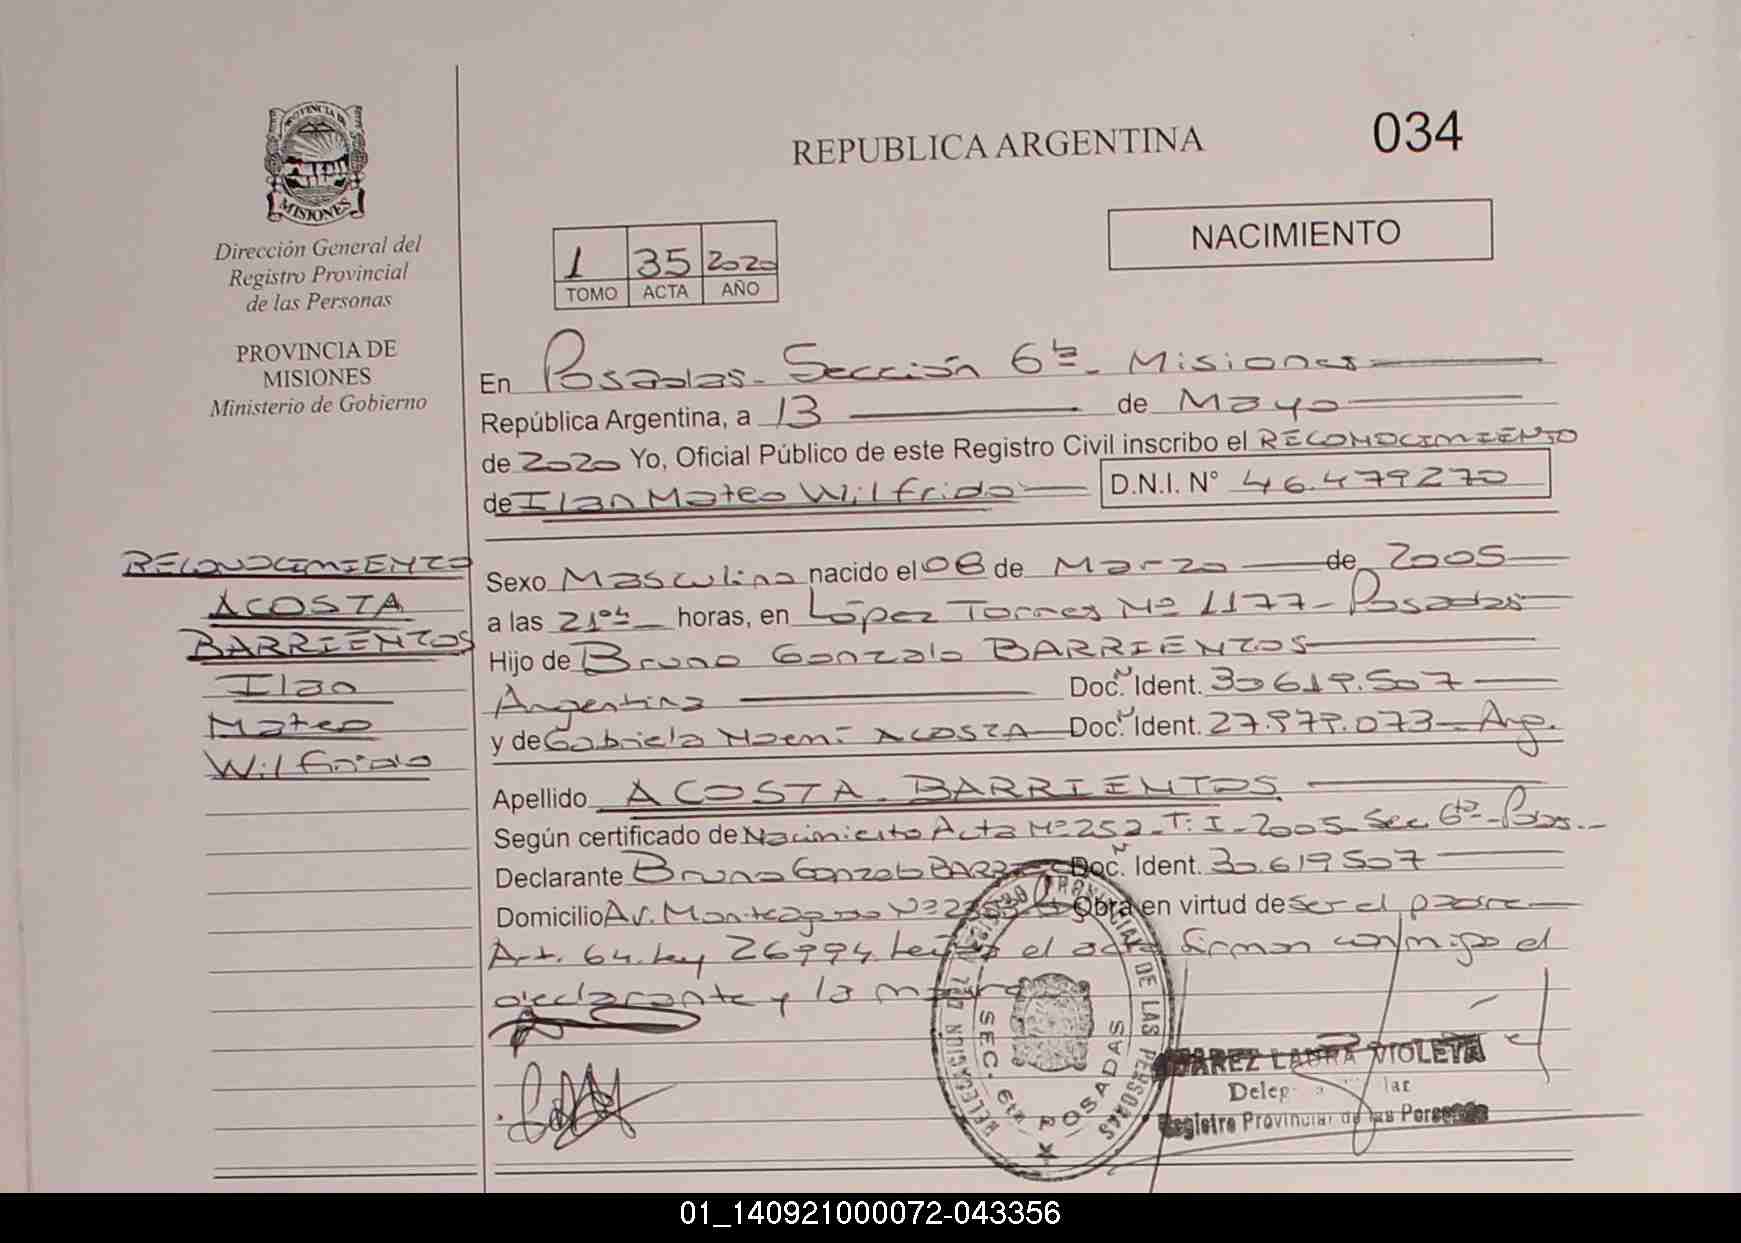 PROVINCIA DE
MISIONES
Dirección General del
Registro Provincial
de las Personas
PROVINCIA DE
MISIONES
Ministerio de Gobierno
REPUBLICA ARGENTINA
034
NACIMIENTO
1 35 2020
TOMO ACTA AÑO
En Posadas - Sección 6ta - Misiones
República Argentina, a 13 de Mayo
de 2020 Yo, Oficial Público de este Registro Civil inscribo el RECONOCIMIENTO
de Ilan Mateo Wilfrido D.N.I. N° 46.479270
RECONOCIMIENTO
ACOSTA
BARRIENTOS
Ilan
Mateo
Wilfrido
Sexo Masculino nacido el 08 de Marzo de 2005
a las 21:04 horas, en López Torres Nº 1177 - Posadas
Hijo de Bruno Gonzalo BARRIENTOS
Argentina Doc. Ident. 30619.507
y de Gabriela Noemí ACOSTA Doc. Ident. 27.979.073 - Arg.
Apellido ACOSTA BARRIENTOS
Según certificado de Nacimiento Acta Nº 252 - T: I - 2005 - Sec 6ta - Pdas.
Declarante Bruno Gonzalo Doc. Ident. 30619507
Domicilio Av. Nº Obra en virtud de ser el padre
Art. 64. Ley 26994 el acta firman conmigo el
declarante y la madre
DELEGACION DEL REGISTRO PROVINCIAL DE LAS PERSONAS
SEC. 6ta POSADAS
LAURA VIOLETA
Registro Provincial de las Personas
01_140921000072-043356